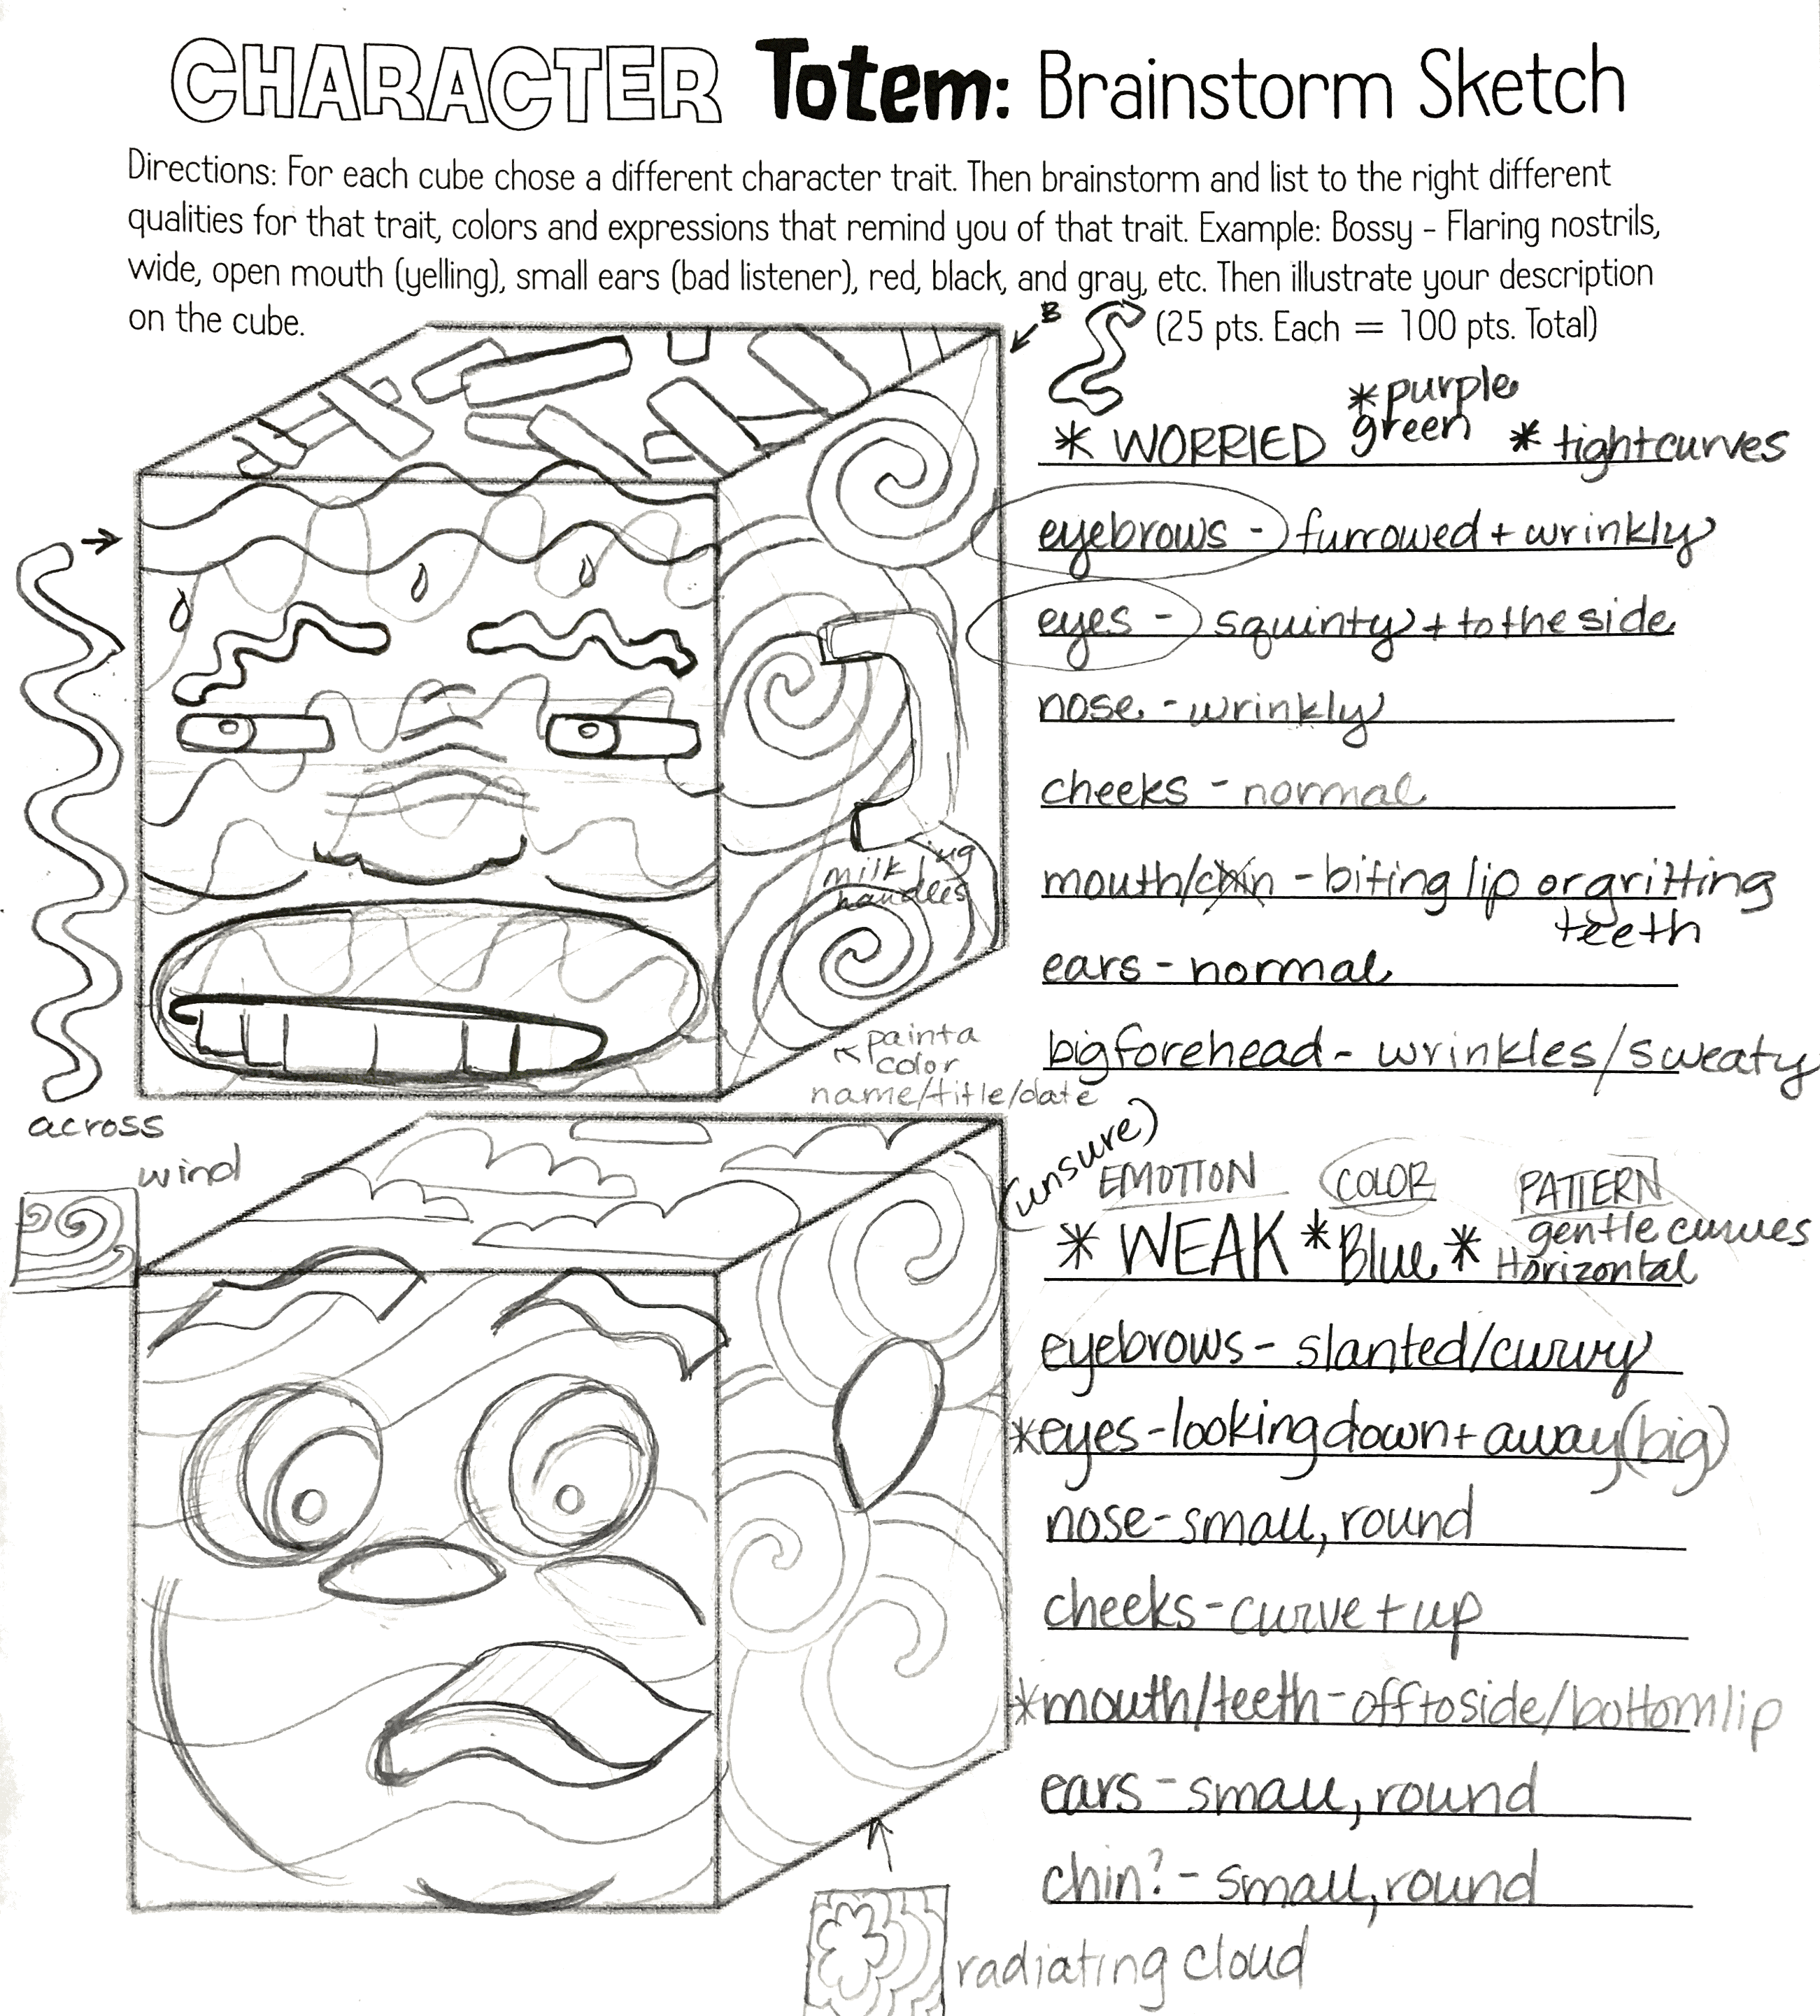 CHARACTER Totem: Brainstorm Sketch
Directions: For each cube chose a different character trait. Then brainstorm and list to the right different
qualities for that trait, colors and expressions that remind you of that trait. Example: Bossy - Flaring nostrils,
wide, open mouth (yelling), small ears (bad listener), red, black, and gray, etc. Then illustrate your description
on the cube.
(25 pts. Each = 100 pts. Total)
B
*purple
* WORRIED green * tight curves
eyebrows - furrowed + wrinkly
eyes - squinty + to the side
nose - wrinkly
cheeks - normal
mouth/chin - biting lip or gritting
teeth
ears - normal
big forehead - wrinkles/sweaty
milk jug
handles
paint a
color
name/title/date
across
wind
(unsure)
EMOTION COLOR PATTERN
* WEAK * Blue * gentle curves
Horizontal
eyebrows - slanted/curvy
*eyes - looking down + away (big)
nose - small, round
cheeks - curve + up
*mouth/teeth - off to side/bottom lip
ears - small, round
chin? - small, round
radiating cloud